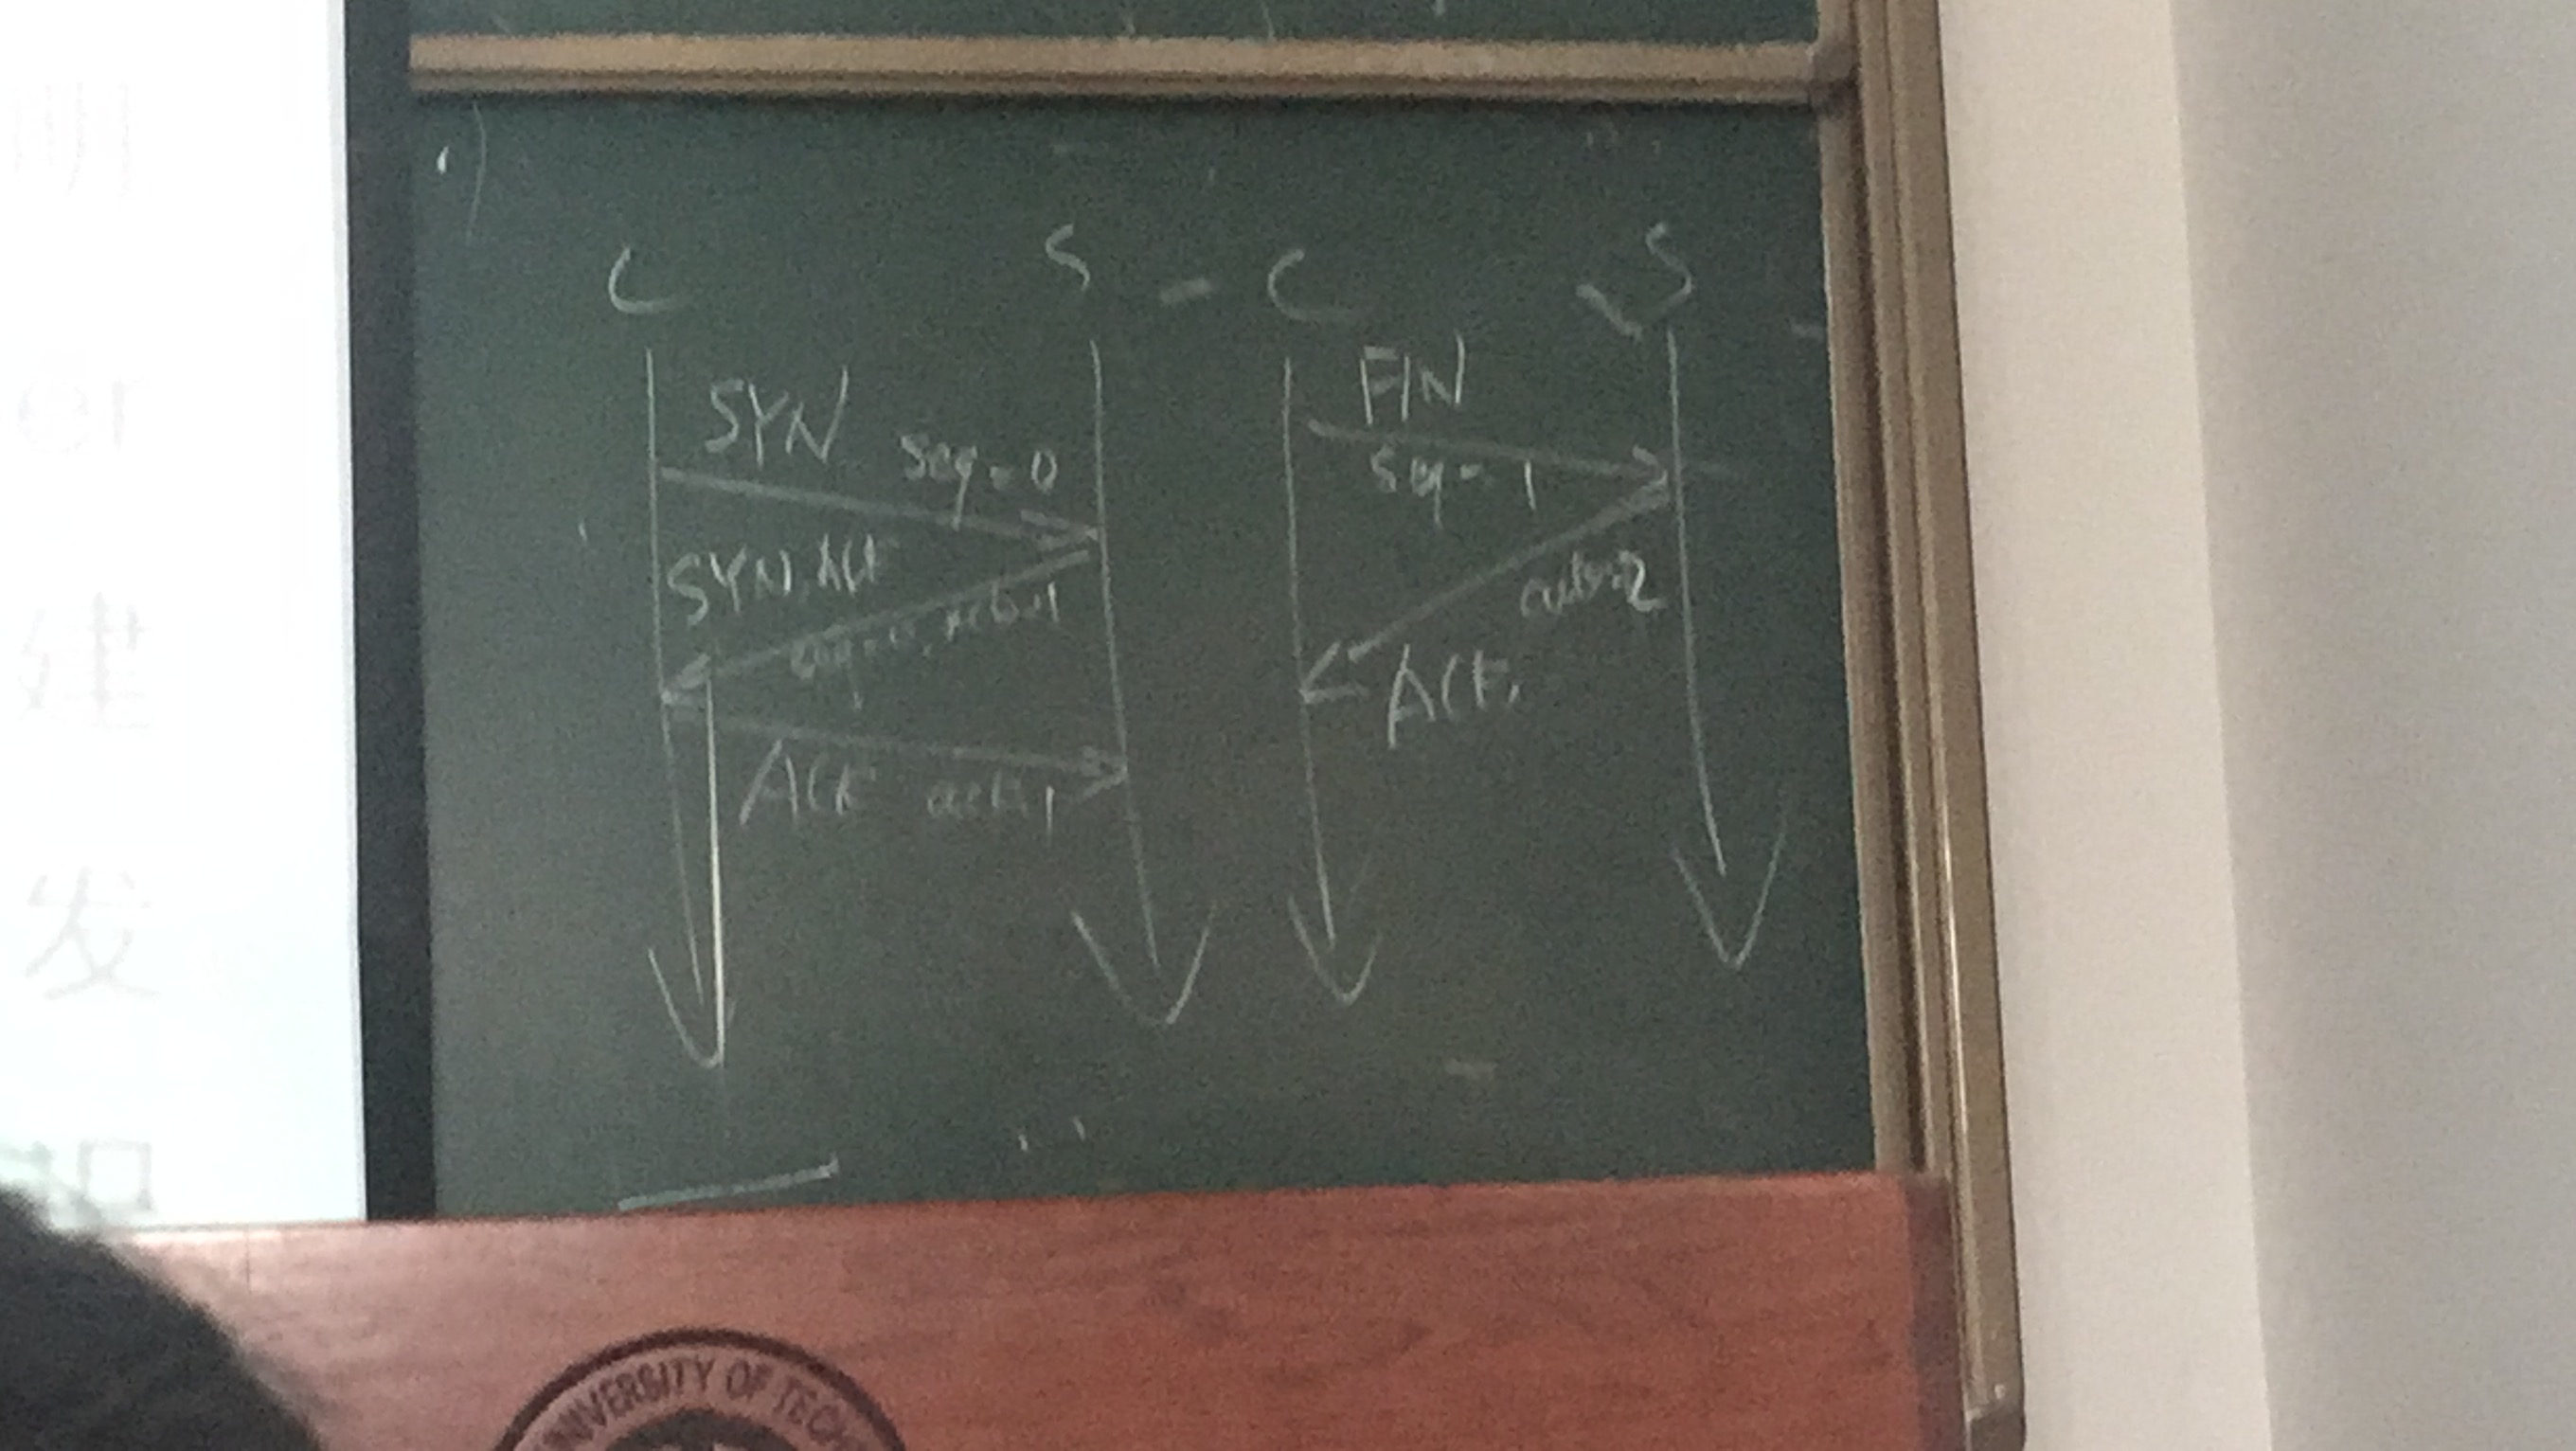 明
C S - C S
SYN
seq=0
SYN, ACK
seq=0, ack=1
ACK ack=1
FIN
seq=1
ack=2
ACK,
建
发
UNIVERSITY OF TECH